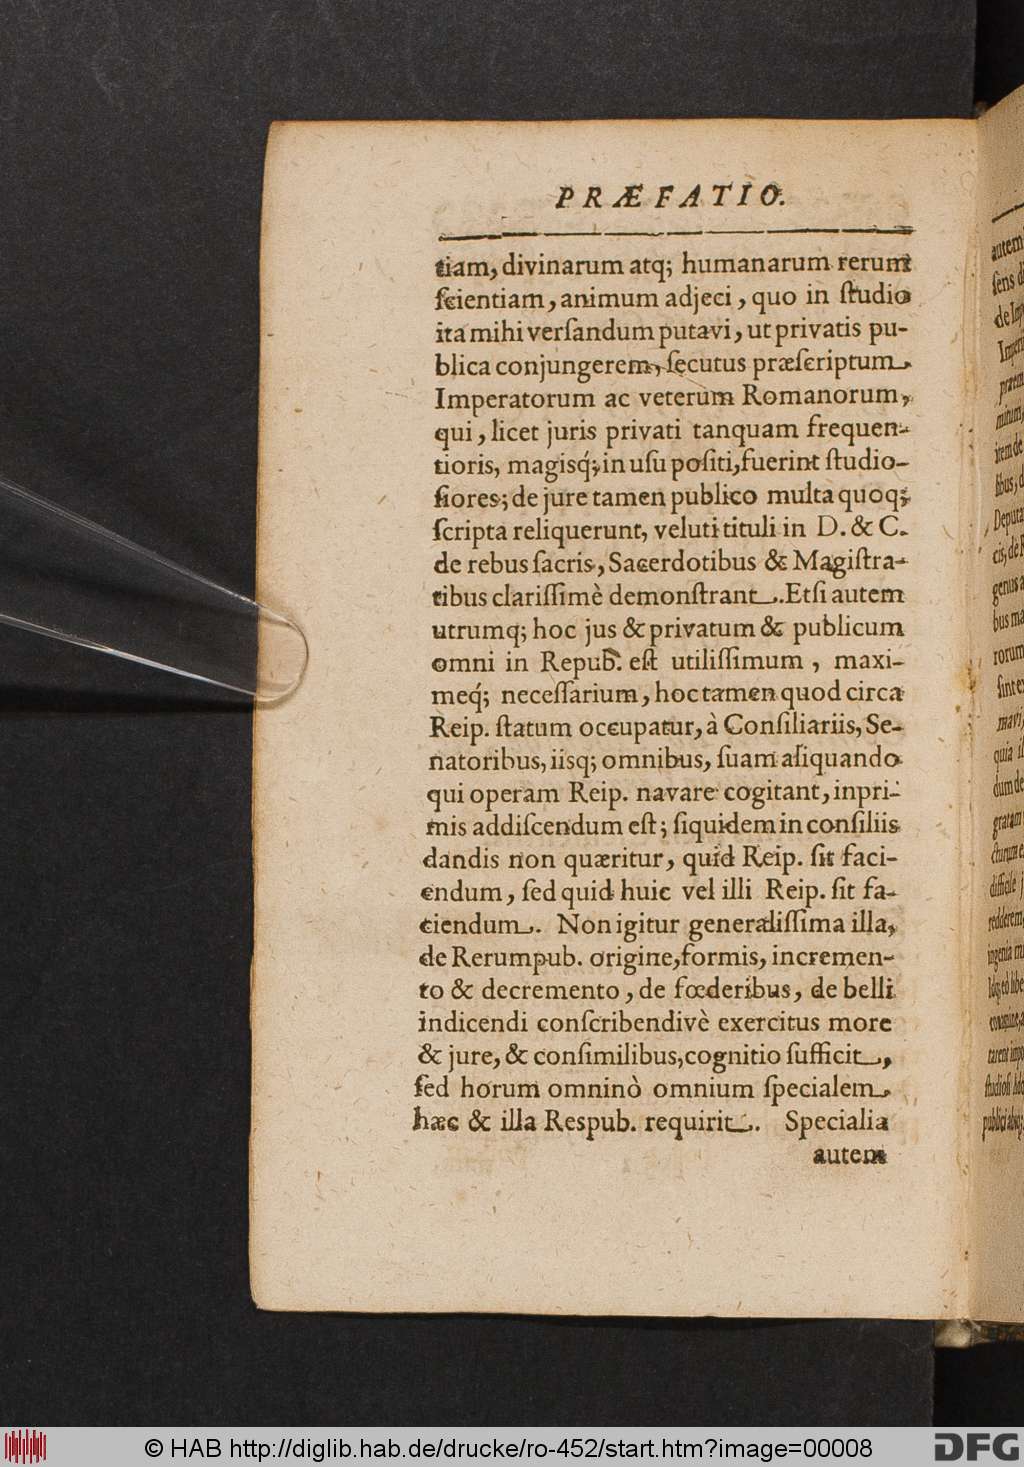 PRÆFATIO.
tiam, divinarum atq; humanarum rerum
ſcientiam, animum adjeci, quo in ſtudio
ita mihi verſandum putavi, ut privatis pu-
blica conjungerem, ſecutus præſcriptum
Imperatorum ac veterum Romanorum,
qui, licet juris privati tanquam frequen-
tioris, magisq́; in uſu poſiti, fuerint ſtudio-
ſiores; de jure tamen publico multa quoq;
ſcripta reliquerunt, veluti tituli in D. & C.
de rebus ſacris, Sacerdotibus & Magiſtra-
tibus clariſſimè demonſtrant. Etſi autem
utrumq; hoc jus & privatum & publicum
omni in Repub. eſt utiliſſimum, maxi-
meq́; neceſſarium, hoc tamen quod circa
Reip. ſtatum occupatur, à Conſiliariis, Se-
natoribus, iisq; omnibus, ſuam aliquando
qui operam Reip. navare cogitant, inpri-
mis addiſcendum eſt; ſiquidem in conſiliis
dandis non quæritur, quid Reip. ſit faci-
endum, ſed quid huic vel illi Reip. ſit fa-
ciendum. Non igitur generaliſſima illa,
de Rerumpub. origine, formis, incremen-
to & decremento, de fœderibus, de belli
indicendi conſcribendivè exercitus more
& jure, & conſimilibus, cognitio ſufficit,
ſed horum omninò omnium ſpecialem
hæc & illa Respub. requirit. Specialia
autem
© HAB http://diglib.hab.de/drucke/ro-452/start.htm?image=00008
DFG